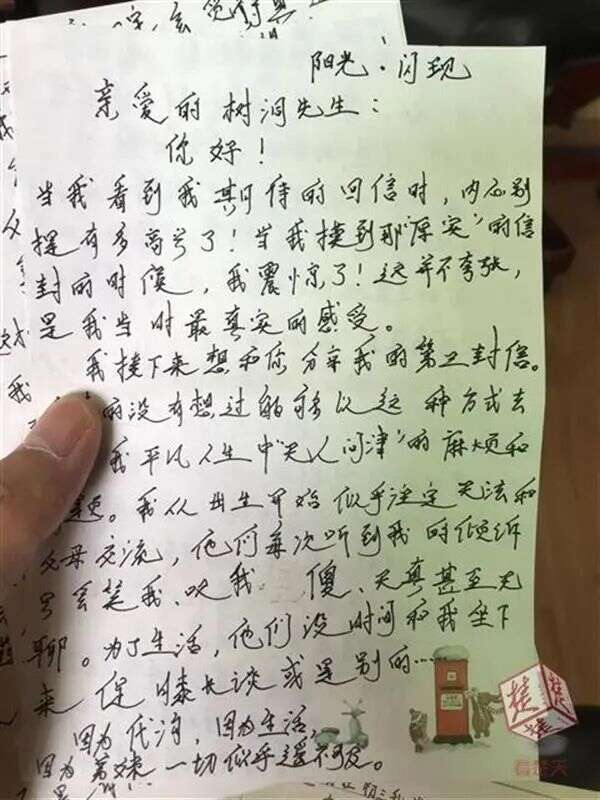 阳光·闪现
亲爱的树洞先生：
你好！
当我看到我期待的回信时，内心别
提有多高兴了！当我摸到那“厚实”的信
封的时候，我震惊了！这并不夸张，
是我当时最真实的感受。
我接下来想和你分享我的第二封信。
的没有想过能够以这种方式去
我平凡人生中“无人问津”的麻烦和
题。我从出生开始似乎注定无法和
父母交流，他们每次听到我的倾诉
只会笑我、呋我 傻、天真甚至无
聊。为了生活，他们没时间和我坐下
来促膝长谈或是别的……
因为代沟，因为生活，
因为弟妹一切似乎遥不可及。
看楚天